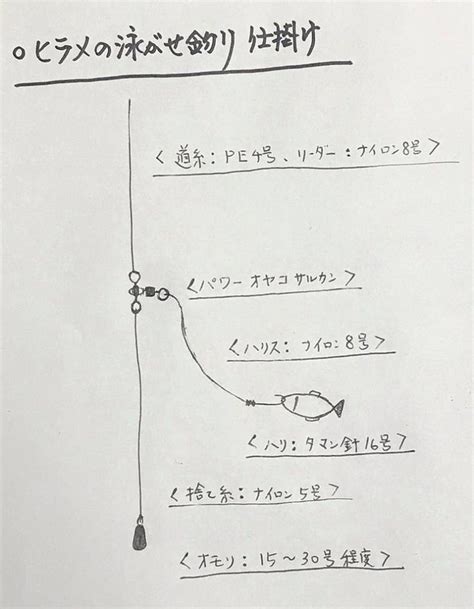 ○ヒラメの泳がせ釣り 仕掛け
<道糸:PE4号、リーダー:ナイロン8号>
<パワーオヤコサルカン>
<ハリス:ナイロン8号>
<ハリ:タマン針16号>
<捨て糸:ナイロン5号>
<オモリ:15〜30号程度>